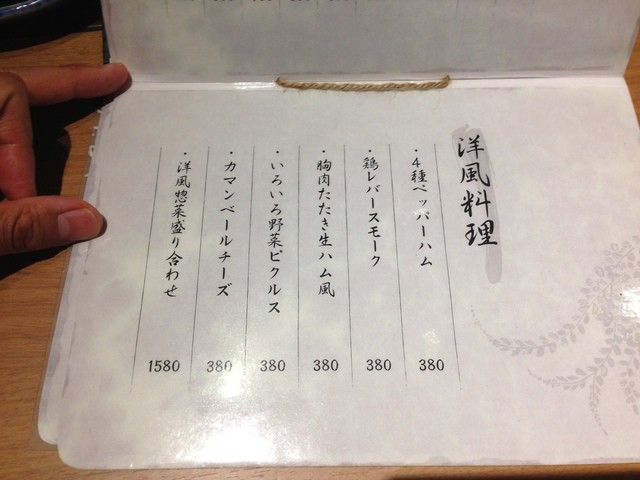 洋風料理
・4種ペッパーハム 380
・鶏レバースモーク 380
・胸肉たたき生ハム風 380
・いろいろ野菜ピクルス 380
・カマンベールチーズ 380
・洋風惣菜盛り合わせ 1580